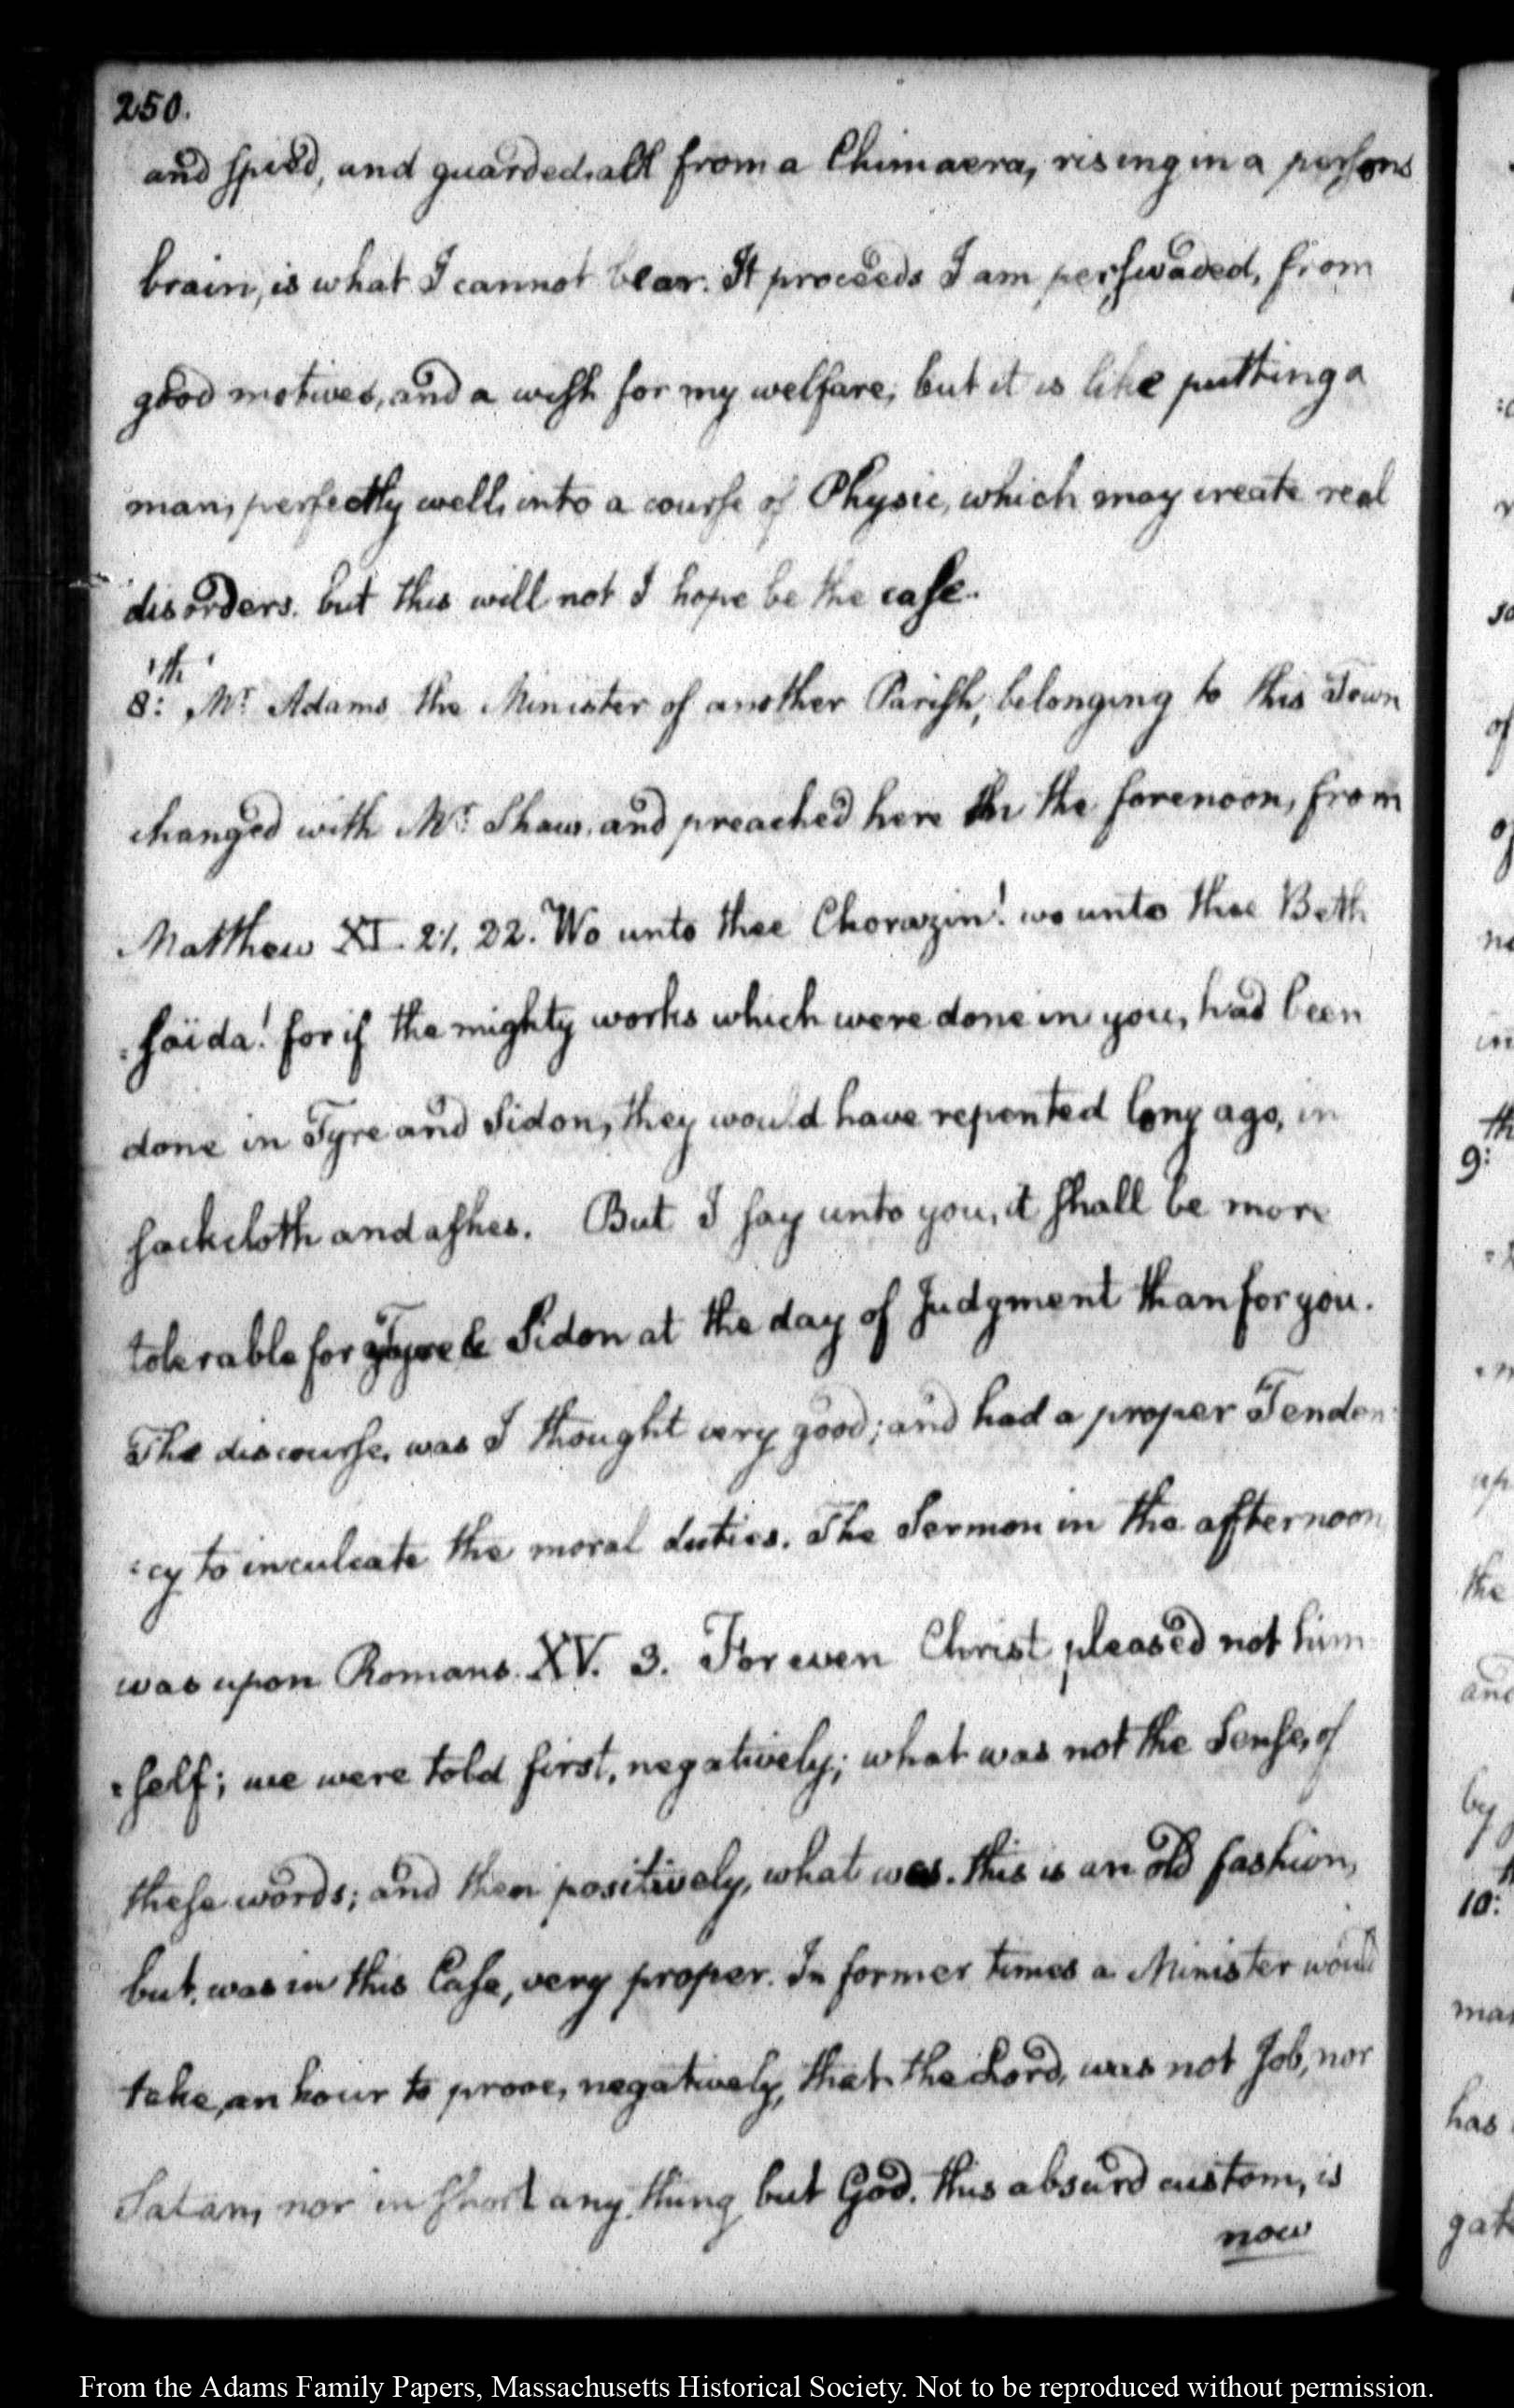 250.
and spied, and guarded, all from a Chimaera, rising in a persons
brain, is what I cannot bear. It proceeds I am perswaded, from
good motives, and a wish for my welfare; but it is like putting a
man, perfectly well, into a course of Physic, which may create real
disorders. but this will not I hope be the case.
8:th Mr. Adams the Minister of another Parish, belonging to this Town
changed with Mr. Shaw, and preached here in the forenoon, from
Matthew XI. 21, 22. Wo unto thee Chorazin! wo unto thee Beth
=saïda! for if the mighty works which were done in you, had been
done in Tyre and Sidon, they would have repented long ago, in
sackcloth and ashes. But I say unto you, it shall be more
tolerable for Tyre & Sidon at the day of Judgment than for you.
The discourse, was I thought very good; and had a proper Tenden
=cy to inculcate the moral duties. The Sermon in the afternoon
was upon Romans. XV. 3. For even Christ pleased not him
=self; we were told first, negatively; what was not the Sense, of
these words; and then positively, what was. this is an old fashion,
but, was in this Case, very proper. In former times a Minister would
take, an hour to prove, negatively, that the Lord, was not Job, nor
Satan, nor in short any thing but God. this absurd custom, is
now
9:th
10:th
the
and
by
has
From the Adams Family Papers, Massachusetts Historical Society. Not to be reproduced without permission.